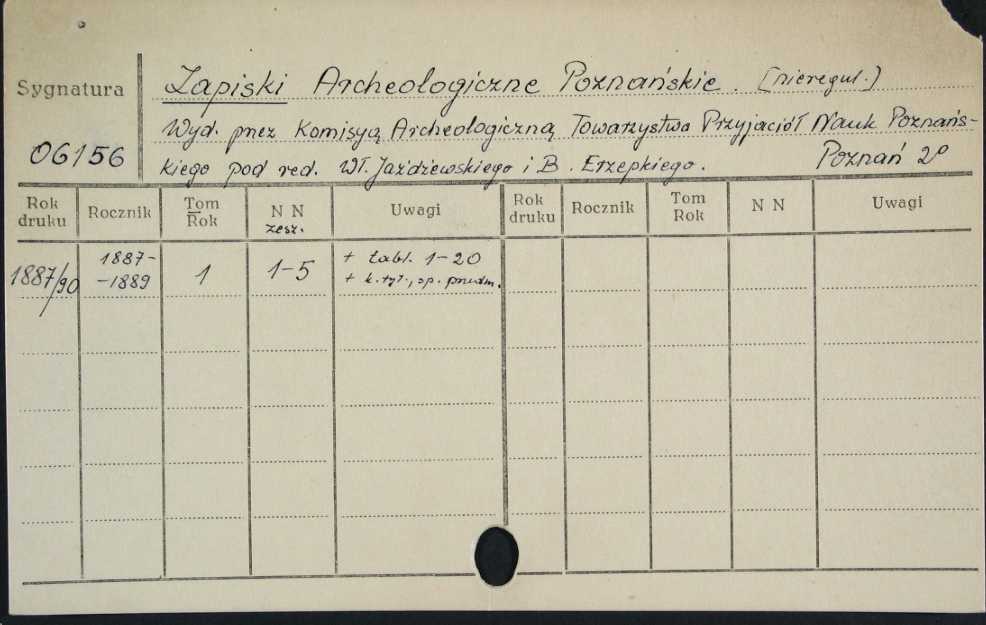 Sygnatura
06156
Zapiski Archeologiczne Poznańskie. [nieregul.)
Wyd. przez Komisyą Archeologiczną Towarzystwa Przyjaciół Nauk Poznańs-
kiego pod red. Wł. Jażdżewskiego i B. Erzepkiego. Poznań 2º
Rok druku Rocznik Tom Rok N N zesz. Uwagi Rok druku Rocznik Tom Rok N N Uwagi
1887/90 1887-
-1889 1 1-5 + tabl. 1-20
+ k. tyt., sp. przedm.